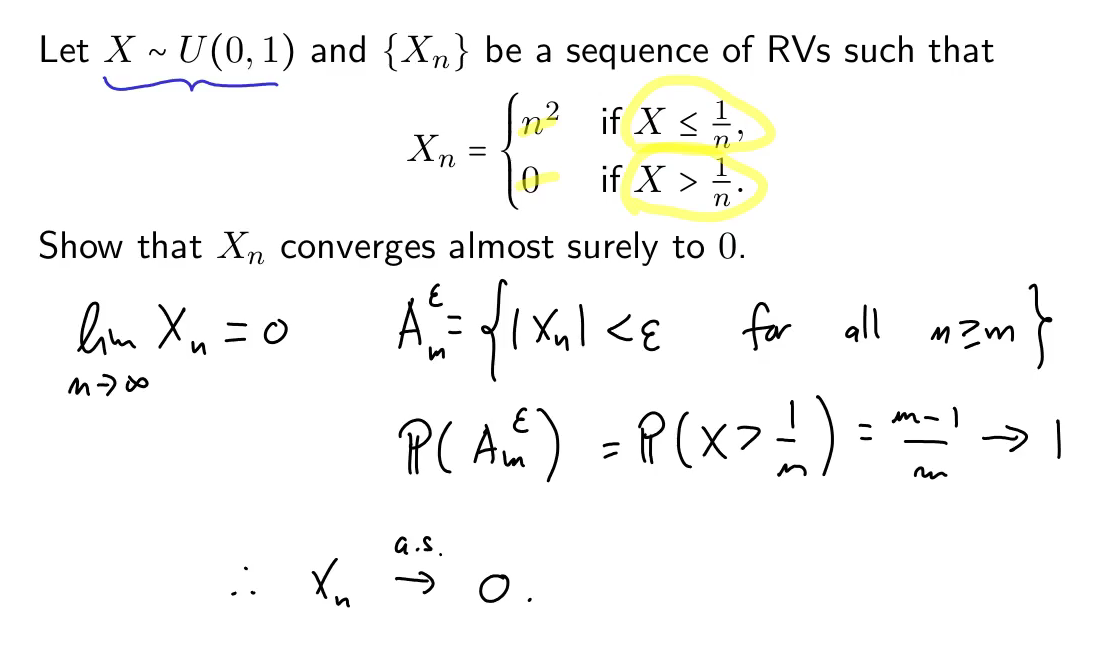 Let X ~ U(0, 1) and {X_n} be a sequence of RVs such that
X_n = { n² if X ≤ 1/n,
0 if X > 1/n.
Show that X_n converges almost surely to 0.
lim_{n→∞} X_n = 0 A_m^ε = { |X_n| < ε for all n ≥ m }
ℙ(A_m^ε) = ℙ(X > 1/n) = (m-1)/m → 1
∴ X_n →^{a.s.} 0.